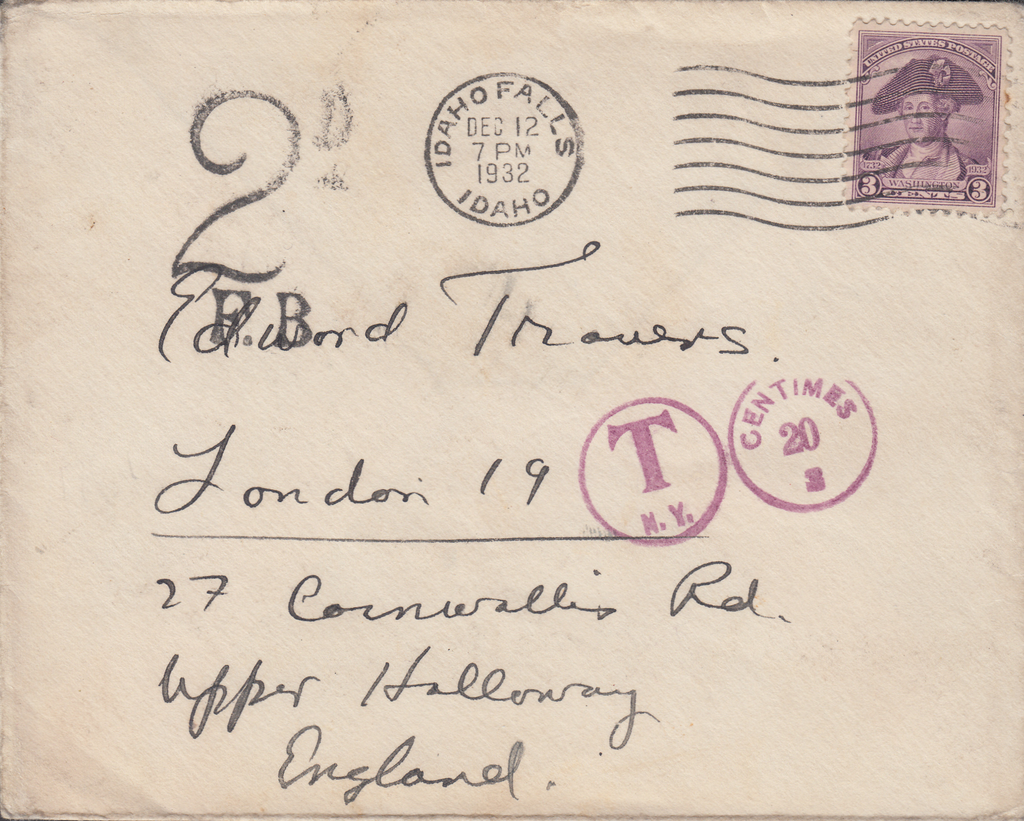 UNITED STATES POSTAGE
1732 1932
3 WASHINGTON 3
CENTS
IDAHO FALLS
DEC 12
7 PM
1932
IDAHO
2D.
F.B.
Edward Travers.
London 19
T
N.Y.
CENTIMES
20
27 Cornwallis Rd.
Upper Halloway
England.